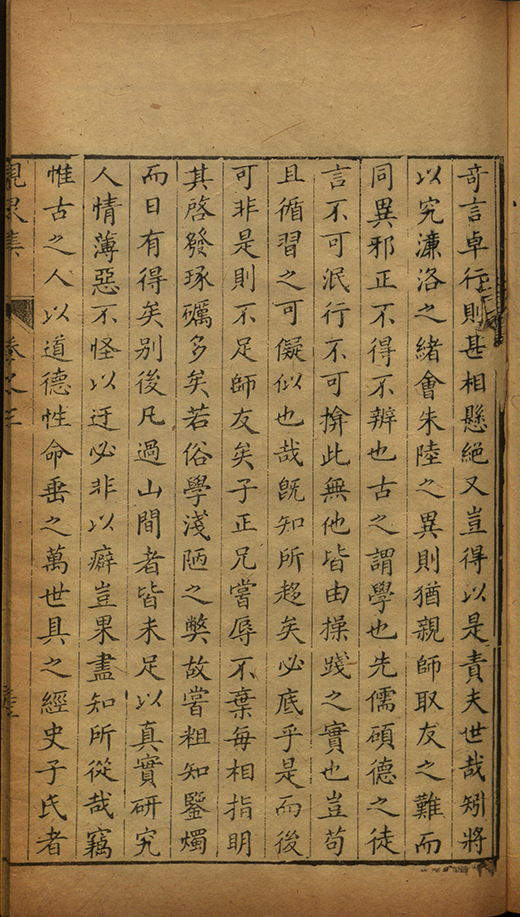 奇言卓行則甚相懸絕又豈得以是責夫世哉矧將
以究濂洛之緒會朱陸之異則猶親師取友之難而
同異邪正不得不辨也古之謂學也先儒碩德之徒
言不可泯行不可揜此無他皆由操踐之實也豈苟
且循習之可儗似也哉旣知所趍矣必底乎是而後
可非是則不足師友矣子正兄嘗辱不棄每相指明
其啓發琢礪多矣若俗學淺陋之弊故嘗粗知鑒燭
而日有得矣别後凡過山間者皆未足以真實研究
人情薄惡不怪以迂必非以癖豈果盡知所從哉竊
惟古之人以道德性命垂之萬世具之經史子氏者
峴泉集
卷之三